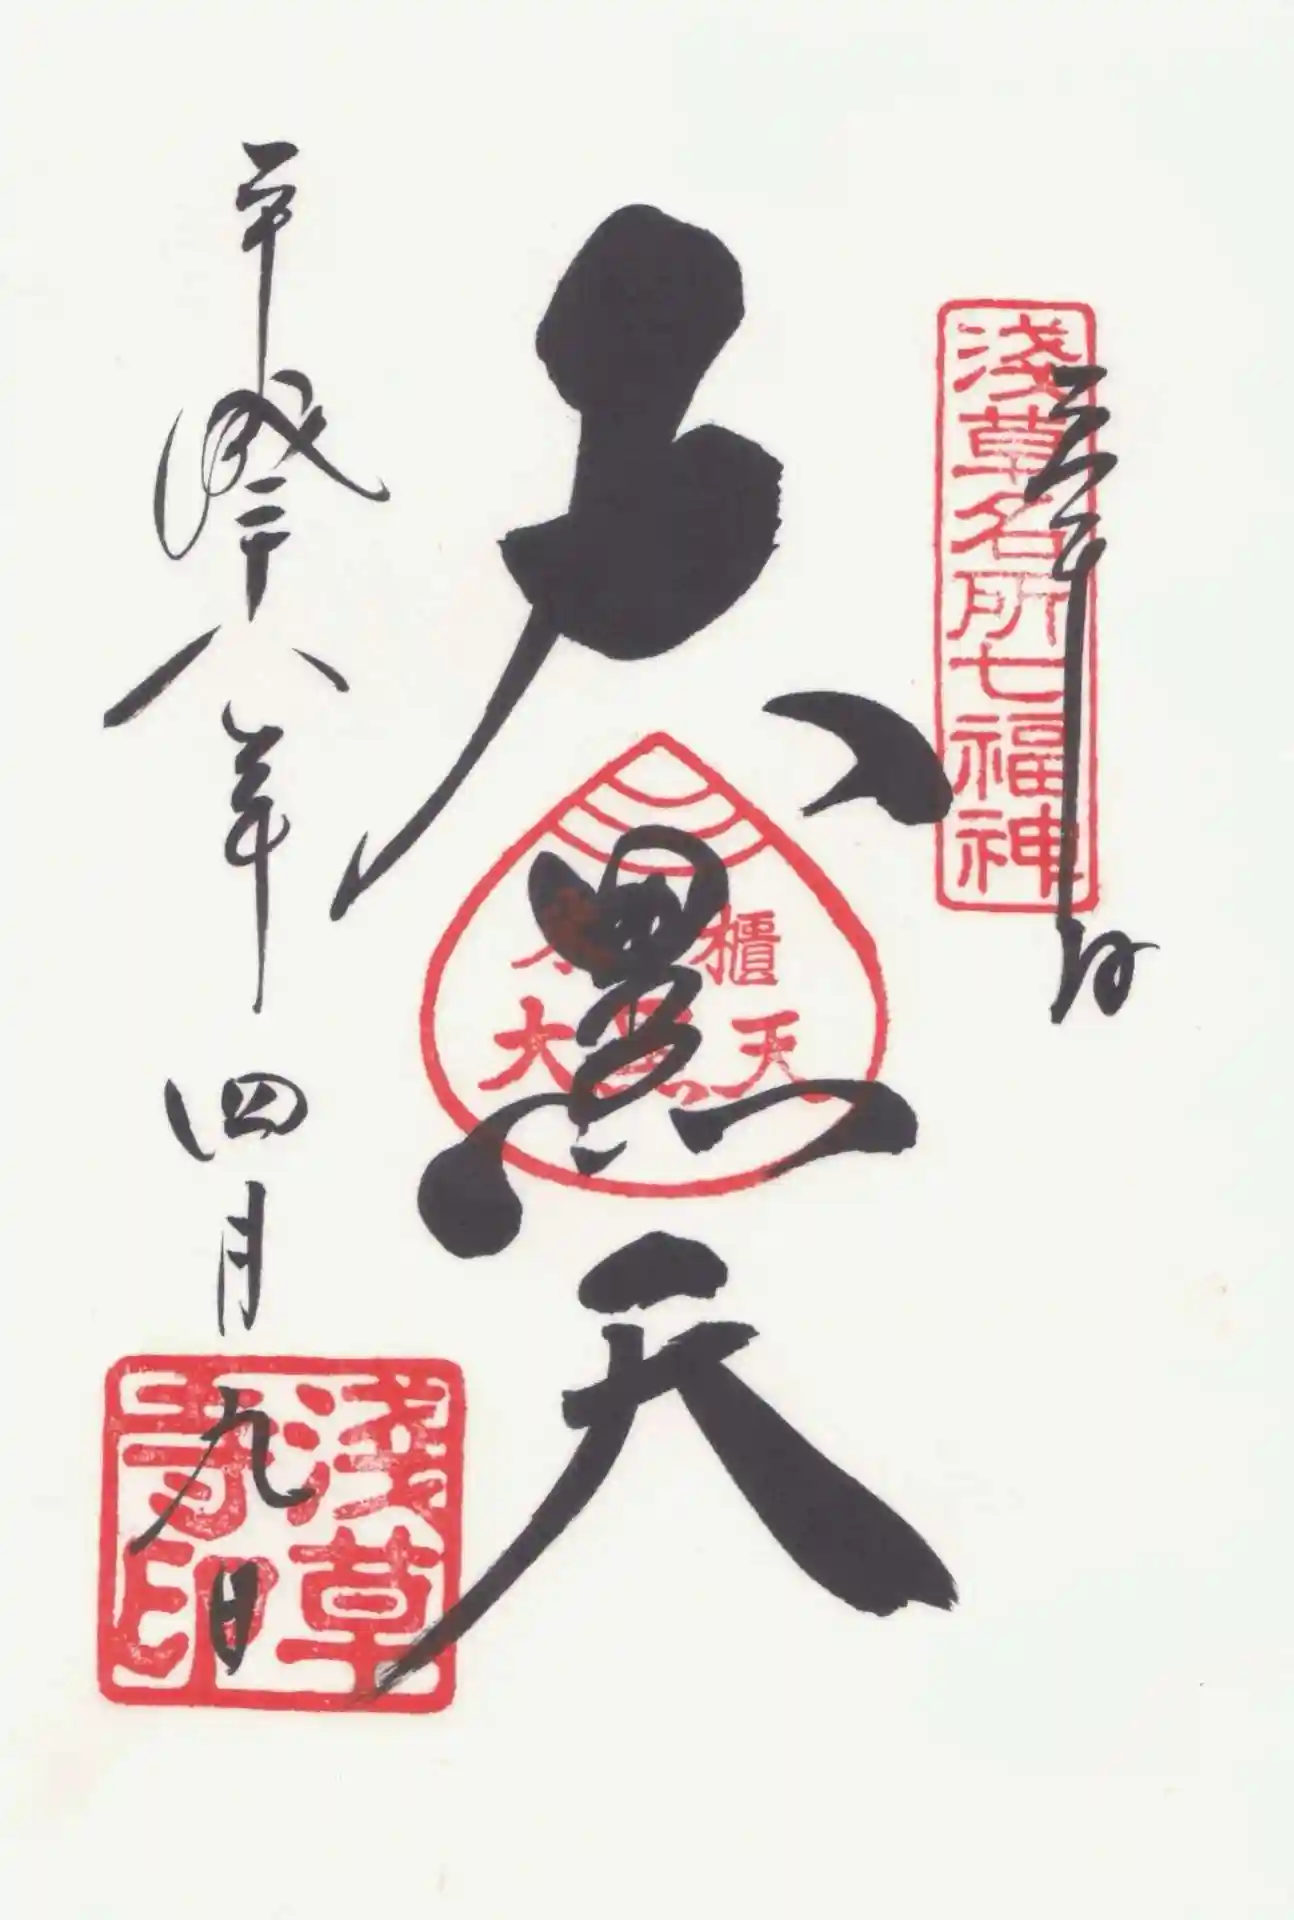 淺草名所七福神
大黒天
米櫃
大黒天
平成二十八年四月九日
淺草
寺印